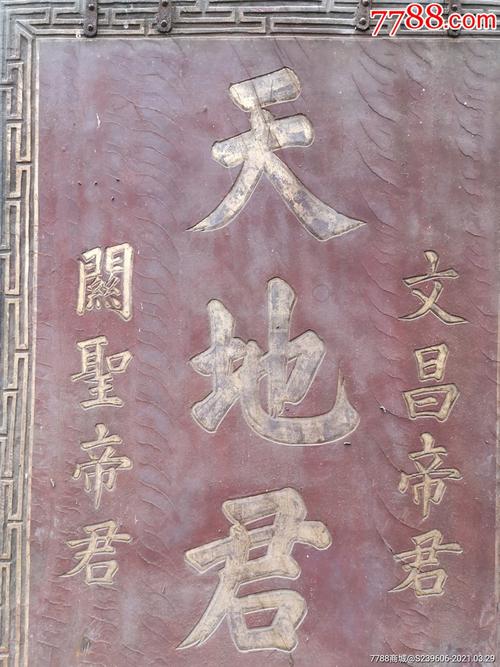 7788.com
文昌帝君
天地君
關聖帝君
7788商城@S239606-2021.03.29